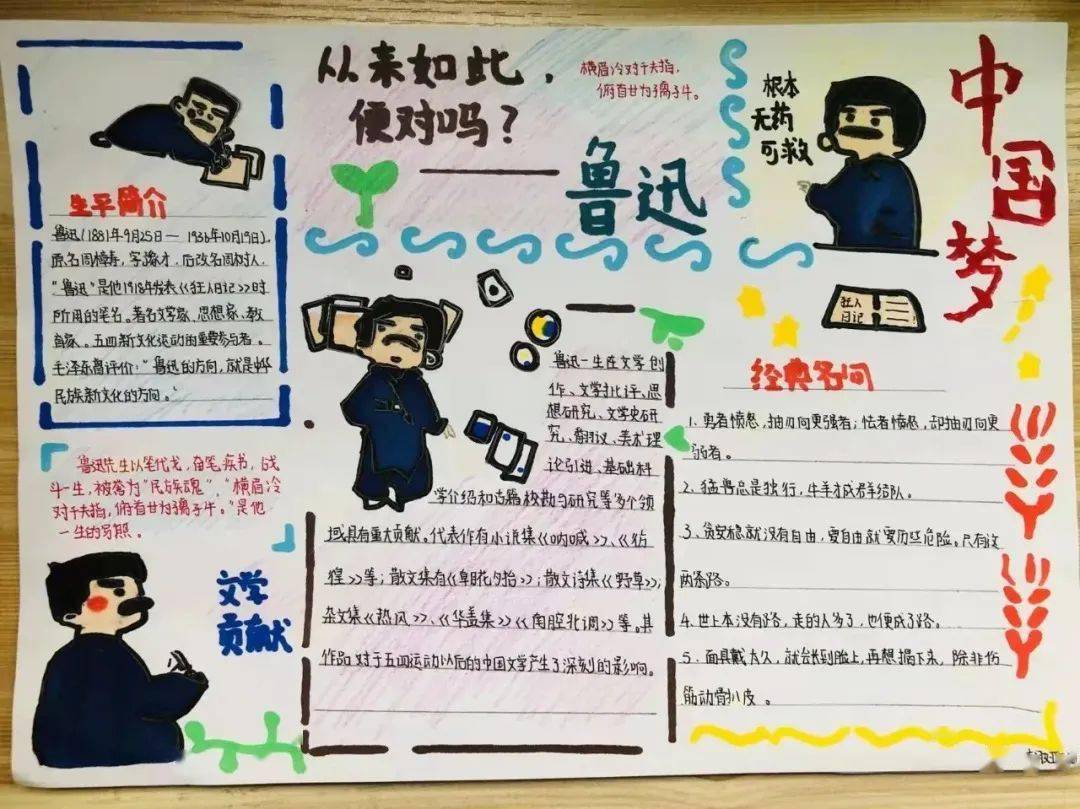 从来如此，
便对吗？
横眉冷对千夫指，
俯首甘为孺子牛。
鲁迅
根本
无药
可救
中国梦
生平简介
鲁迅（1881年9月25日— 1936年10月19日），
原名周樟寿，字豫才，后改名周树人，
“鲁迅”是他1918年发表《狂人日记》时
所用的笔名。著名文学家、思想家、教
育家。五四新文化运动的重要参与者。
毛泽东曾评价：“鲁迅的方向，就是中华
民族新文化的方向。”
鲁迅先生以笔代戈，奋笔疾书，战
斗一生，被誉为“民族魂”，“横眉冷
对千夫指，俯首甘为孺子牛。”是他
一生的写照。
文学
贡献
鲁迅一生在文学创
作、文学批评、思
想研究、文学史研
究、翻译、美术理
论引进、基础科
学介绍和古籍校勘与研究等多个领
域具有重大贡献。代表作有小说集《呐喊》、《彷
徨》等；散文集有《朝花夕拾》；散文诗集《野草》；
杂文集《热风》、《华盖集》《南腔北调》等。其
作品对于五四运动以后的中国文学产生了深刻的影响。
狂人
日记
经典名句
1、勇者愤怒，抽刃向更强者；怯者愤怒，却抽刃向更
弱者。
2、猛兽总是独行，牛羊才成群结队。
3、贪安稳就没有自由，要自由就要历些危险。只有这
两条路。
4、世上本没有路，走的人多了，也便成了路。
5、面具戴太久，就会长到脸上，再想揭下来，除非伤
筋动骨扒皮。